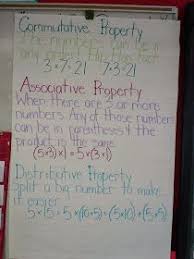 Commutative Property
The numbers can be in
any order
3×7=21 7·3=21
Associative Property
When there are 3 or more
numbers. Any of those numbers
can be in parenthesis & the
product is the same.
(5×3)×1=5×(3×1)
Distributive Property
Split a big number to make
it easier.
5×15=5×(10+5)=(5×10)+(5×5)